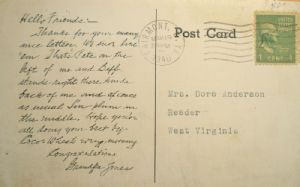 Hello Friends:-
Thanks for your many
nice letters. We sure like
'em. That's Pete on the
left of me and Biff
stands right there kinda
back of me and
as usual I'm plum in
the middle. Hope you're
all doing your best by
Coco Wheats every morning
Congratulations
Grandpa Jones
MONT, W.
1940
Post Card
1 CENT 1
Mrs. Dora Anderson
Reeder
West Virginia